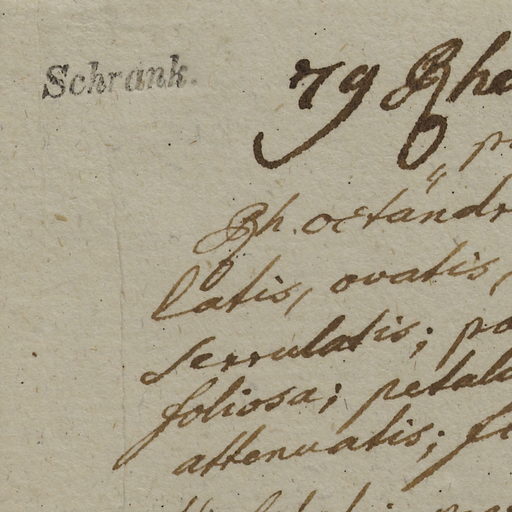 Schrank.
79 Rhe
Rh. octandr
latis, ovatis,
serrulatis;
foliosa; petala
attenuatis;